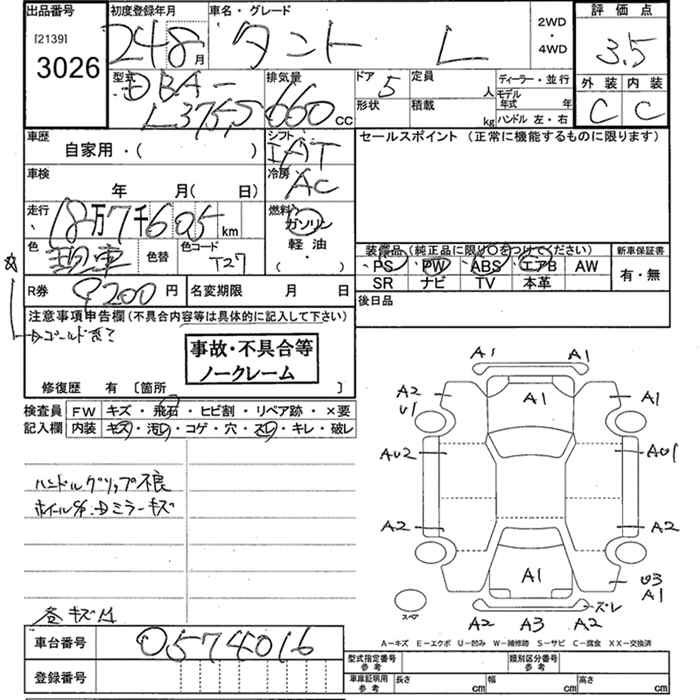 出品番号 初度登録年月 車名・グレード 2WD・4WD 評価点
[2139]
3026
24 8月 タント L 3.5
型式 DBA-L375S
排気量 660 CC
ドア 5 定員 人 ディーラー・並行
形状 積載 kg モデル年式 年
ハンドル 左・右
外装 内装
C C
車歴 自家用・( )
シフト IAT
セールスポイント (正常に機能するものに限ります)
車検 年 月( 日)
冷房 AC
走行 18万7千605 km
燃料 ガソリン 軽油 ・( )
色 色替 色コード T27
装備品(純正品に限り○をつけてください) 新車保証書
PS PW ABS エアB AW 有・無
SR ナビ TV 本革
R券 9200円 名変期限 月 日
後日品
注意事項申告欄(不具合内容等は具体的に記入して下さい)
事故・不具合等
ノークレーム
修復歴 有 〔箇所 〕
検査員 FW キズ・飛石・ヒビ割・リペア跡・×要
記入欄 内装 キズ・汚レ・コゲ・穴・スレ・キレ・破レ
ハンドルグリップ不良
ミラーキズ
各キズ凹
車台番号 0574016
登録番号
A1 A1
A2 A1 A1
U1
AU2 AU1
A2 A2
A1 U3
A1
スペア ズレ
A2 A3 A2
A－キズ E－エクボ U－凹み W－補修跡 S－サビ C－腐食 XX－交換済
型式指定番号 参考 類別区分番号 参考
車庫証明用 参考 長さ cm 幅 cm 高さ cm